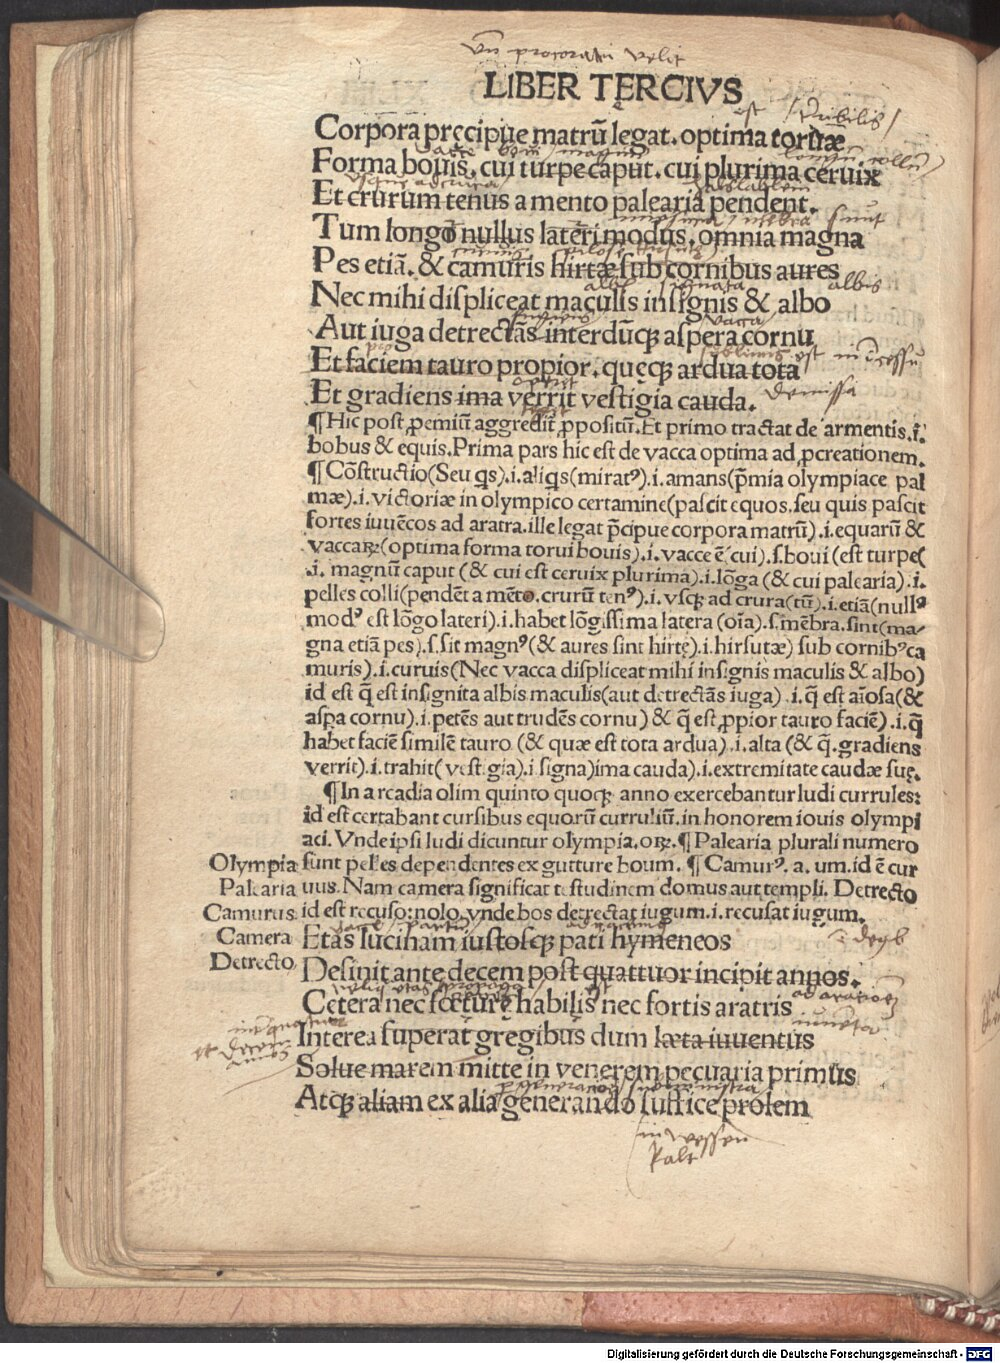 LIBER TERCIVS
Corpora pręcipue matrū legat. optima toruæ
Forma bouis. cui turpe caput. cui plurima ceruix
Et crurum tenus a mento palearia pendent.
Tum longo nullus lateri modus. omnia magna
Pes etiā. & camuris hirtæ sub cornibus aures
Nec mihi displiceat maculis insignis & albo
Aut iuga detrectās interdūqꝫ aspera cornu
Et faciem tauro propior. quęqꝫ ardua tota
Et gradiens ima verrit vestigia cauda.
¶ Hic post ꝓemiū aggredit᷑ ꝓpositū. Et primo tractat de armentis .i.
bobus & equis. Prima pars hic est de vacca optima ad ꝓcreationem.
¶ Cōstructio (Seu qs) .i. aliqs (miratꝰ) .i. amans (p̄mia olympiace pal
mæ) .i. victoriæ in olympico certamine (pascit equos. seu quis pascit
fortes iuuēcos ad aratra. ille legat p̄cipue corpora matrū) .i. equarū &
vaccaꝝ (optima forma torui bouis) .i. vacce ē (cui) .s. boui (est turpe(
.i. magnū caput (& cui est ceruix plurima) .i. lōga (& cui palearia) .i.
pelles colli (pendēt a mēto. crurū tenꝰ) .i. vsqꝫ ad crura (tū) .i. etiā (nullꝰ
modꝰ est lōgo lateri) .i. habet lōgissima latera (oīa) .s. mēbra. sint (ma
gna etiā pes) .s. sit magnꝰ (& aures sint hirtę) .i. hirsutæ) sub cornibꝰ ca
muris) .i. curuis (Nec vacca displiceat mihi insignis maculis & albo)
id est q̄ est insignita albis maculis (aut detrectās iuga) .i. q̄ est aīosa (&
aspa cornu) .i. petēs aut trudēs cornu) & q̄ est ꝓpior tauro faciē) .i. q̄
habet faciē similē tauro (& quæ est tota ardua) .i. alta (& q̄. gradiens
verrit) .i. trahit (vestigia) .i. signa) ima cauda) .i. extremitate caudæ suę.
¶ In arcadia olim quinto quoqꝫ anno exercebantur ludi currules:
id est certabant cursibus equorū curruliū. in honorem iouis olympi
aci. Vnde ipsi ludi dicuntur olympia. oꝝ. ¶ Palearia plurali numero
Olympia sunt pelles dependentes ex gutture boum. ¶ Camurꝰ. a. um. id ē cur
Palearia uus. Nam camera significat testudinem domus aut templi. Detrecto
Camurus. id est recuso: nolo. vnde bos detrectat iugum .i. recusat iugum.
Camera Etas lucinam iustosqꝫ pati hymeneos
Detrecto Desinit ante decem post quattuor incipit annos.
Cetera nec fœturę habilis nec fortis aratris
Interea superat gregibus dum læta iuuentus
Solue marem mitte in venerem pecuaria primus
Atqꝫ aliam ex alia generando suffice prolem
Digitalisierung gefördert durch die Deutsche Forschungsgemeinschaft - DFG